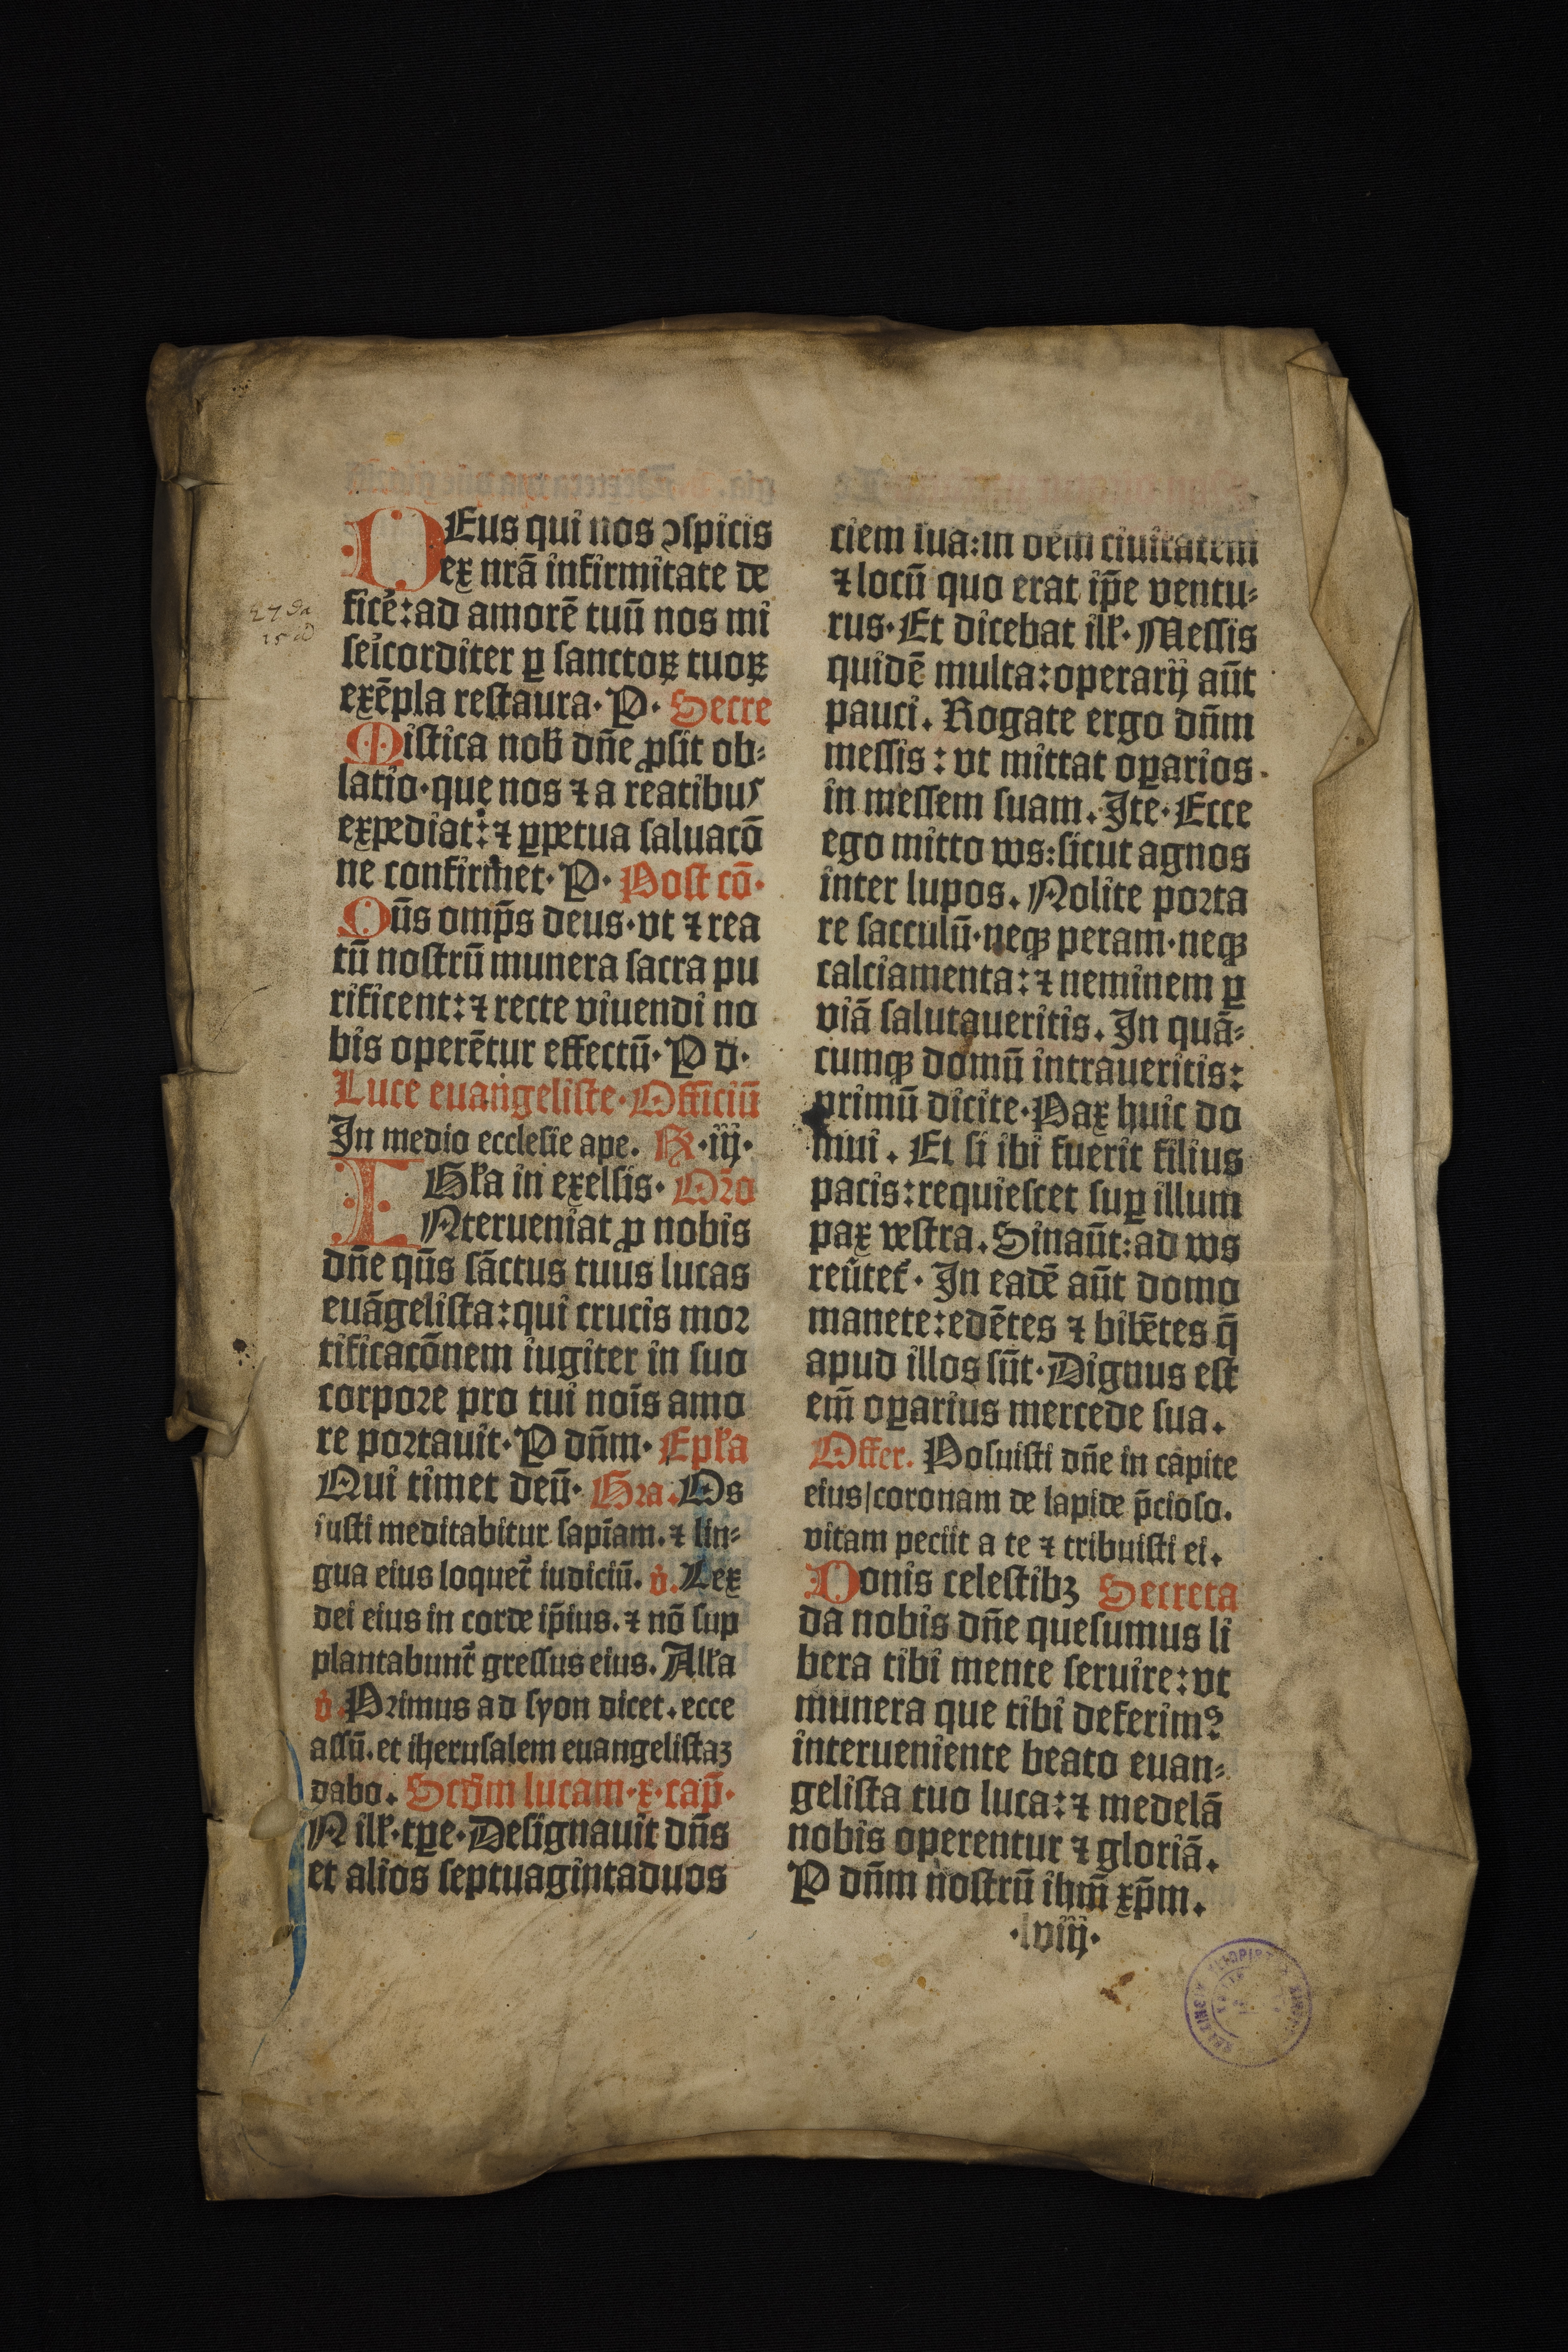 DEus qui nos ↄspicis
ex nrā infirmitate de
ficē: ad amorē tuū nos mi
sēicorditer ꝑ sanctoꝝ tuoꝝ
exēpla restaura· P· Secre
Mistica nob̄ dn̄e ꝓsit ob⸗
latio· que nos ⁊ a reatibus
expediat: ⁊ ꝑpetua saluacō
ne confirmet· P· Post cō·
Qūs omp̄s deus· vt ⁊ rea
tū nostrū munera sacra pu
rificent: ⁊ recte viuendi no
bis operētur effectū· P d·
Luce euangeliste· Officiū
In medio ecclesie ape. R̷·iij·
Gl̓a in exelsis· Oro
INterueniat ꝓ nobis
dn̄e qūs sāctus tuus lucas
euāgelista: qui crucis moꝛ
tificacōnem iugiter in suo
corpoꝛe pro tui noīs amo
re poꝛtauit· P dn̄m· Epl̓a
Qui timet deū· Gꝛa. Os
iusti meditabitur sapīam. ⁊ lin⸗
gua eius loquet̄ iudiciū. v̓. Lex
dei eius in corde ip̄ius. ⁊ nō sup
plantabunt̄ gressus eius. All̓a
v̓. Pꝛimus ad syon dicet. ecce
assū. et iherusalem euangelistaʒ
dabo. Scd̄m lucam· x· cap̄·
N ill̓· tꝑe· Designauit dn̄s
et alios septuagintaduos
ciem sua: in oēm ciuitatem
⁊ locū quo erat ip̄e ventu⸗
rus· Et dicebat ill̓· Messis
quidē multa: operarij aūt
pauci. Rogate ergo dn̄m
messis: vt mittat oꝑarios
in messem suam. Ite· Ecce
ego mitto vos: sicut agnos
inter lupos. Nolite poꝛta
re sacculū· neqꝫ peram· neqꝫ
calciamenta: ⁊ neminem ꝑ
viā salutaueritis. In quā⸗
cumqꝫ domū intraueritis:
primū dicite· Pax huic do
mui. Et si ibi fuerit filius
pacis: requiescet suꝑ illum
pax vestra. Sinaūt: ad vos
reūtet̄· In eadē aūt domo
manete: edētes ⁊ bibētes q̄
apud illos sūt· Dignus est
em̄ oꝑarius mercede sua.
Offer. Posuisti dn̄e in capite
eius/coronam de lapide p̄cioso.
vitam peciit a te ⁊ tribuisti ei.
Donis celestibꝫ Secreta
da nobis dn̄e quesumus li
bera tibi mente seruire: vt
munera que tibi deferimꝰ
interueniente beato euan⸗
gelista tuo luca: ⁊ medelā
nobis operentur ⁊ gloriā.
P dn̄m nostrū ihm̄ xp̄m.
·lviij·